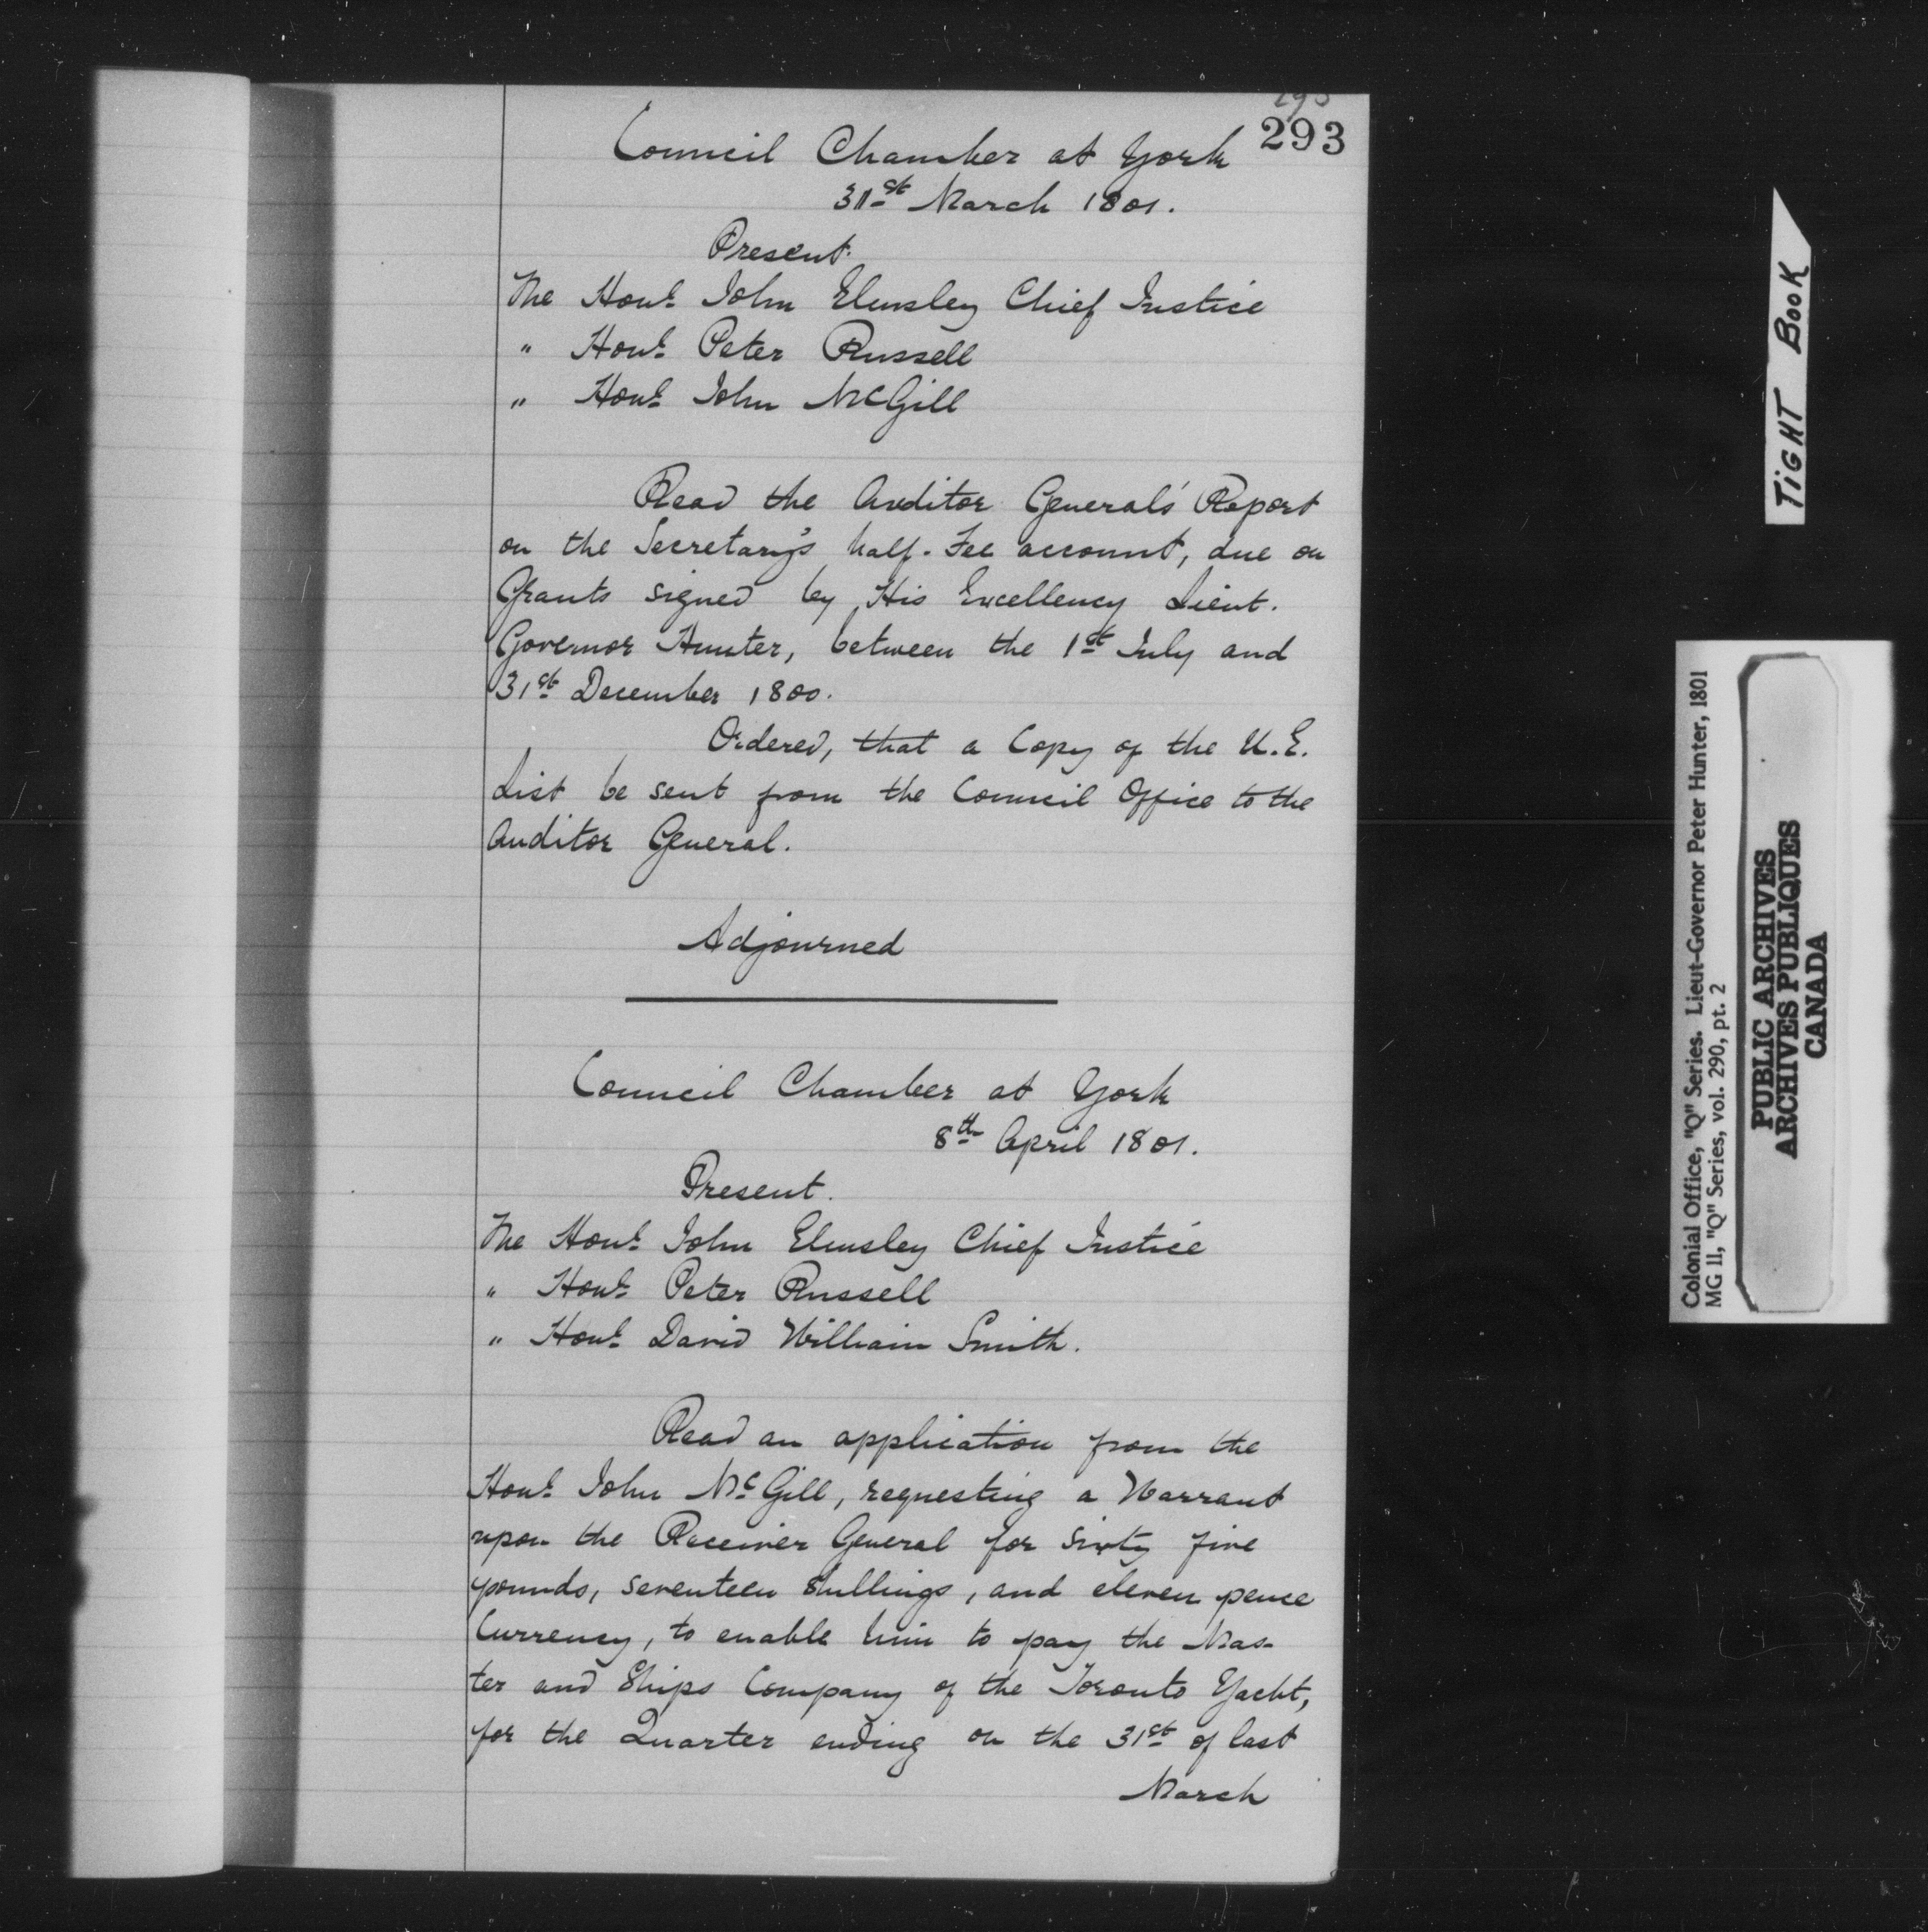 293
Council Chamber at York
31st March 1801.
Present.
The Honle John Elmsley Chief Justice
" Honle Peter Russell
" Honle John McGill
Read the Auditor General's Report
on the Secretary's half-Fee account, due on
Grants signed by His Excellency Lieut.
Governor Hunter, between the 1st July and
31st December 1800.
Ordered, that a Copy of the U.E.
List be sent from the Council Office to the
Auditor General.
Adjourned
Council Chamber at York
8th April 1801.
Present.
The Honle John Elmsley Chief Justice
" Honle Peter Russell
" Honle David William Smith.
Read an application from the
Honle John McGill, requesting a Warrant
upon the Receiver General for Sixty five
pounds, seventeen Shillings, and eleven pence
Currency, to enable him to pay the Mas-
ter and Ships Company of the Toronto Yacht,
for the Quarter ending on the 31st of last
March
TIGHT BOOK
Colonial Office, "Q" Series. Lieut-Governor Peter Hunter, 1801
MG 11, "Q" Series, vol. 290, pt. 2
PUBLIC ARCHIVES
ARCHIVES PUBLIQUES
CANADA